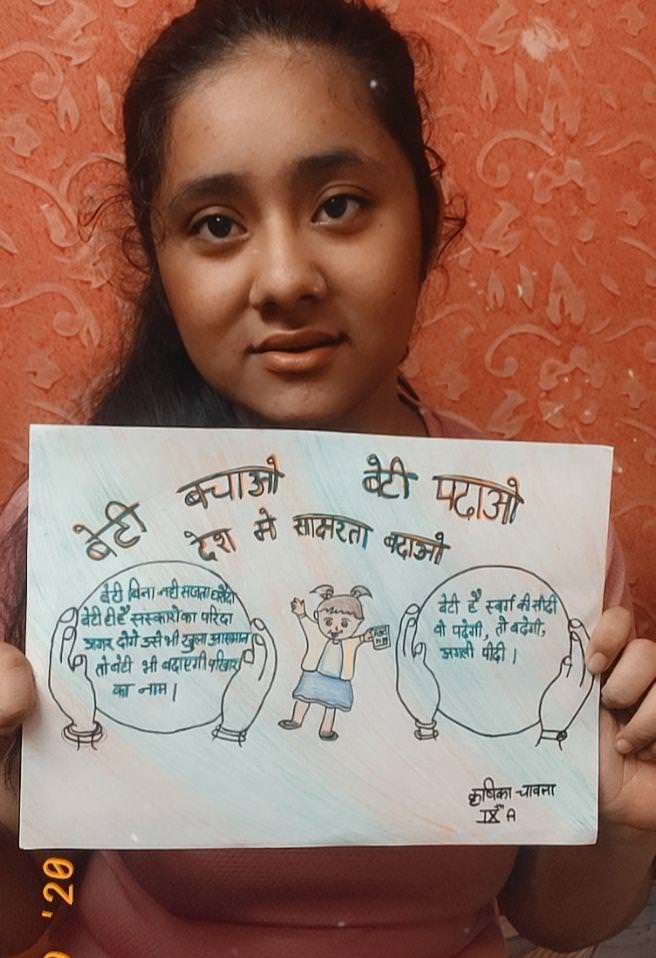 बेटी बचाओ बेटी पढाओ
देश मे साक्षरता बढाओ
बेटी बिना नही सजता घरौंदा
बेटी ही है संस्कारो का परिंदा
अगर दोगे उसे भी खुला आसमान
तो बेटी भी बढाएगी परिवार
का नाम।
बेटी है स्वर्ग की सीढी
वो पढेगी, तो बढेगी,
अगली पीढी।
कृषिका चावना
IXth A
'20